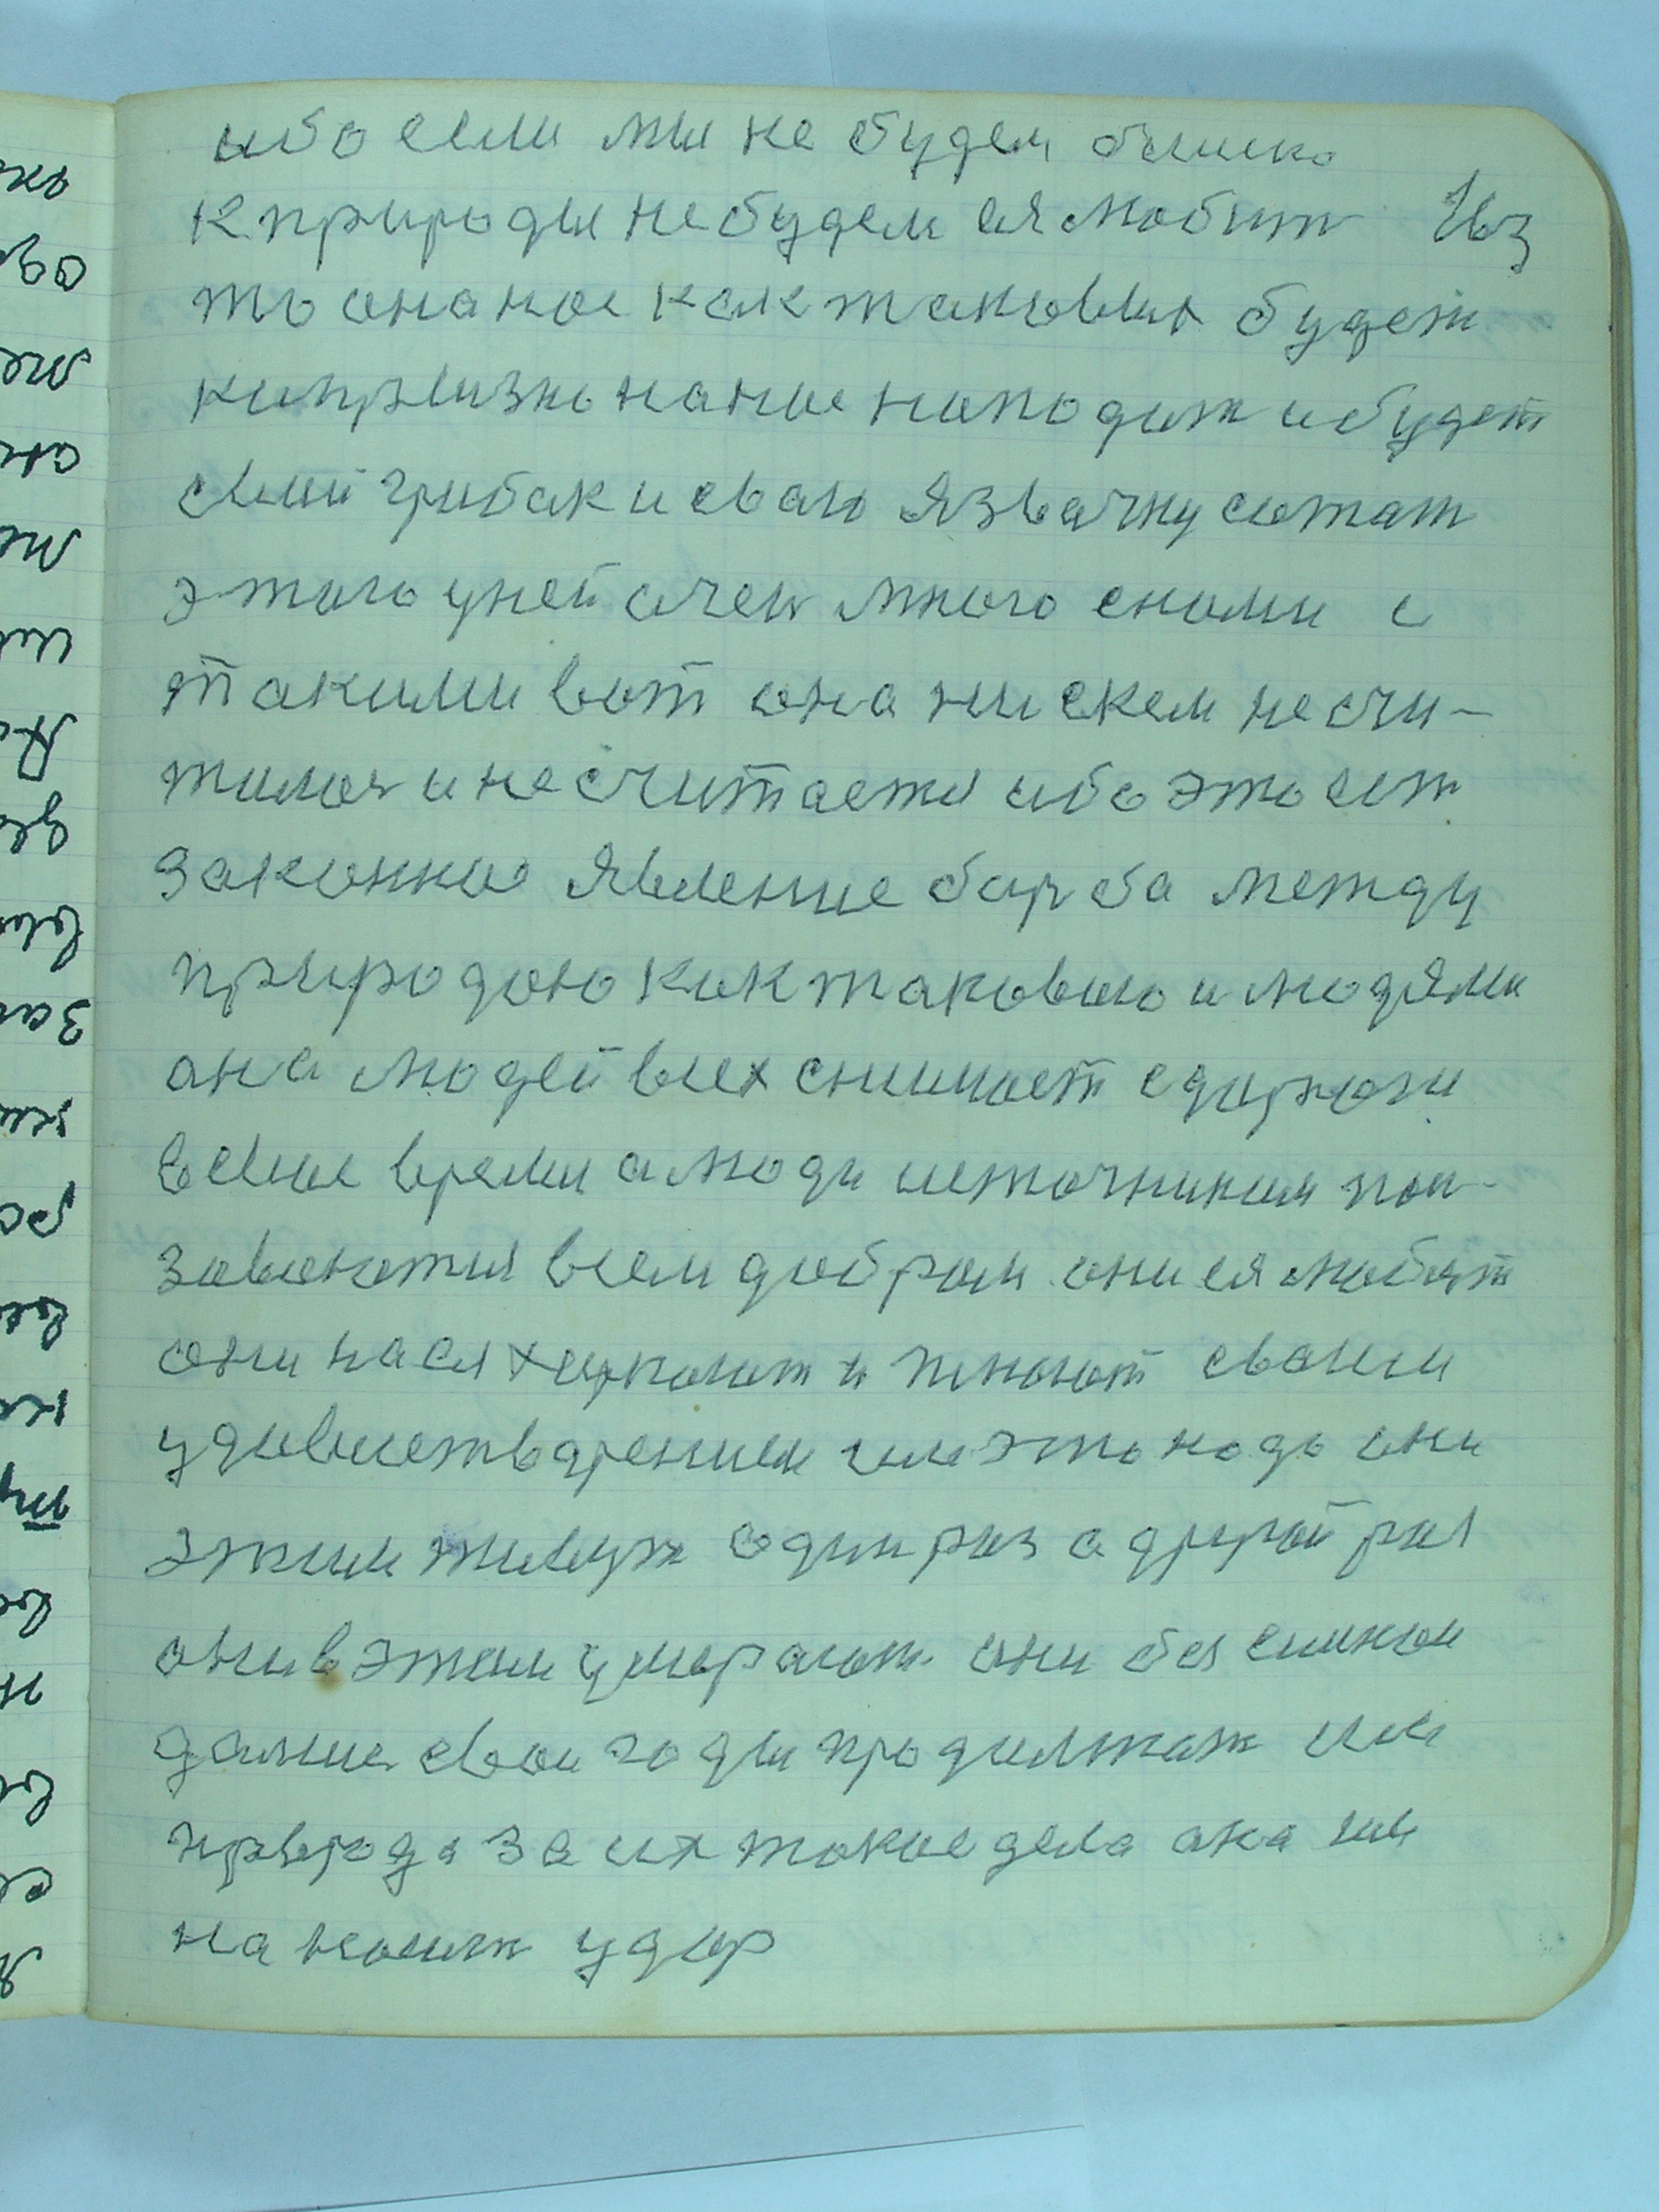 ибо если мы не будем близко
к природы не будем ея любит Из
то она нас как таковых будет
капризно на нас нападат и будет
свой грибок и сваю язвачку сотат
этого у ней очен много с нами с
такими вот она ни скем не счи-
талас и не считается ибо это ест
законное явление барба между
природою как таковою и людями
она людей всех снимает с дароги
все время а люди источником поль
зоваются всем добром они ея любят
они на ея харкают и плюют своим
удовлетвдрением им это надо они
этим живут один раз а другой раз
они в этом умирают они бессилном
далше свои годы продолжат им
прврода за их такие дела она им
наносит удар